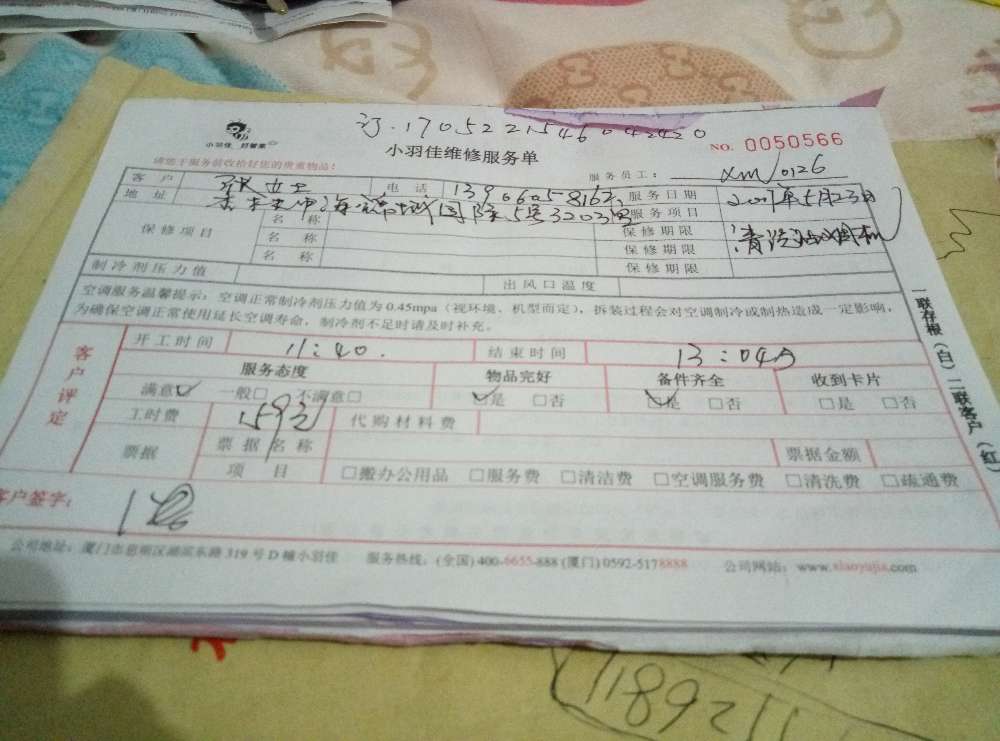 订.1705221546042420
小羽佳 好管家
小羽佳维修服务单
NO. 0050566
请您于服务前收拾好您的贵重物品!
服务员工: xm/0126
客户 张女士 电话 服务日期
地址 服务项目
保修项目 名称 保修期限
名称 保修期限
名称 保修期限
制冷剂压力值 出风口温度
空调服务温馨提示:空调正常制冷剂压力值为0.45mpa(视环境、机型而定),拆装过程会对空调制冷或制热造成一定影响,
为确保空调正常使用延长空调寿命,制冷剂不足时请及时补充。
客户评定
开工时间 11:40. 结束时间 13:04
服务态度 物品完好 备件齐全 收到卡片
满意 一般□ 不满意□ 是 □否 □是 □否 □是 □否
工时费 159元 代购材料费
票据 票据名称 票据金额
项目 □搬办公用品 □服务费 □清洁费 □空调服务费 □清洗费 □疏通费
客户签字:
公司地址:厦门市思明区湖滨东路319号D幢小羽佳 服务热线:(全国)400-6655-888(厦门)0592-5178888 公司网站:www.xiaoyujia.com
一联存根(白)二联客户(红)